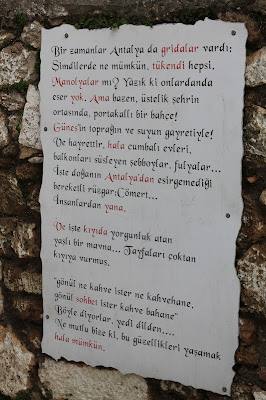 Bir zamanlar Antalya da gridalar vardı;
Şimdilerde ne mümkün, tükendi hepsi,
Manolyalar mı? Yazık ki onlardanda
eser yok. Ama bazen, üstelik şehrin
ortasında, portakallı bir bahçe!
Güneş'in toprağın ve suyun gayretiyle!
Ve hayrettir, hala cumbalı evleri,
balkonları süsleyen şebboylar, fulyalar...
İşte doğanın Antalya'dan esirgemediği
bereketli rüzgar;Cömert...
İnsanlardan yana.
Ve işte kıyıda yorgunluk atan
yaşlı bir mavna... Tayfaları çoktan
kıyıya vurmuş.
"gönül ne kahve ister ne kahvehane,
gönül sohbet ister kahve bahane"
Böyle diyorlar, yedi dilden....
Ne mutlu bize ki, bu güzellikleri yaşamak
hala mümkün.